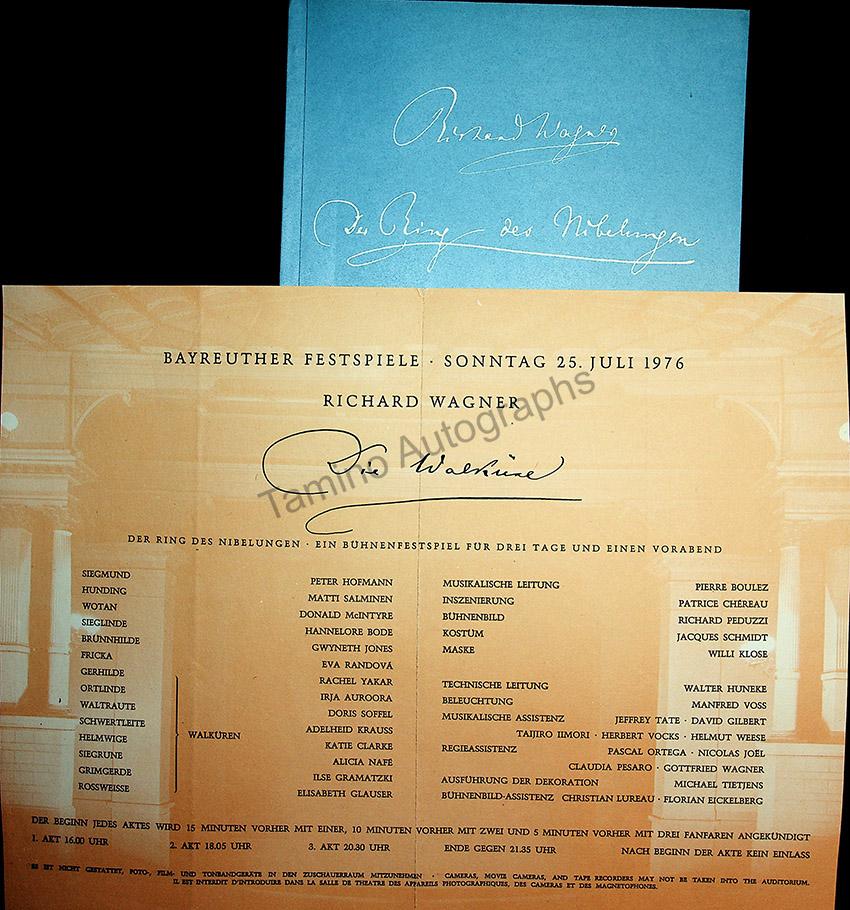 Richard Wagner
Der Ring des Nibelungen
BAYREUTHER FESTSPIELE · SONNTAG 25. JULI 1976
RICHARD WAGNER
Die Walküre
Tamino Autographs
DER RING DES NIBELUNGEN · EIN BÜHNENFESTSPIEL FÜR DREI TAGE UND EINEN VORABEND
SIEGMUND PETER HOFMANN
HUNDING MATTI SALMINEN
WOTAN DONALD McINTYRE
SIEGLINDE HANNELORE BODE
BRÜNNHILDE GWYNETH JONES
FRICKA EVA RANDOVÁ
GERHILDE RACHEL YAKAR
ORTLINDE IRJA AUROORA
WALTRAUTE DORIS SOFFEL
SCHWERTLEITE ADELHEID KRAUSS
HELMWIGE KATIE CLARKE
SIEGRUNE ALICIA NAFÉ
GRIMGERDE ILSE GRAMATZKI
ROSSWEISSE ELISABETH GLAUSER
WALKÜREN
MUSIKALISCHE LEITUNG PIERRE BOULEZ
INSZENIERUNG PATRICE CHÉREAU
BÜHNENBILD RICHARD PEDUZZI
KOSTÜM JACQUES SCHMIDT
MASKE WILLI KLOSE
TECHNISCHE LEITUNG WALTER HUNEKE
BELEUCHTUNG MANFRED VOSS
MUSIKALISCHE ASSISTENZ JEFFREY TATE · DAVID GILBERT
TAIJIRO IIMORI · HERBERT VOCKS · HELMUT WEESE
REGIEASSISTENZ PASCAL ORTEGA · NICOLAS JOËL
CLAUDIA PESARO · GOTTFRIED WAGNER
AUSFÜHRUNG DER DEKORATION MICHAEL TIETJENS
BÜHNENBILD-ASSISTENZ CHRISTIAN LUREAU · FLORIAN EICKELBERG
DER BEGINN JEDES AKTES WIRD 15 MINUTEN VORHER MIT EINER, 10 MINUTEN VORHER MIT ZWEI UND 5 MINUTEN VORHER MIT DREI FANFAREN ANGEKÜNDIGT
1. AKT 16.00 UHR 2. AKT 18.05 UHR 3. AKT 20.30 UHR ENDE GEGEN 21.35 UHR NACH BEGINN DER AKTE KEIN EINLASS
ES IST NICHT GESTATTET, FOTO-, FILM- UND TONBANDGERÄTE IN DEN ZUSCHAUERRAUM MITZUNEHMEN · CAMERAS, MOVIE CAMERAS, AND TAPE RECORDERS MAY NOT BE TAKEN INTO THE AUDITORIUM.
IL EST INTERDIT D'INTRODUIRE DANS LA SALLE DE THEATRE DES APPAREILS PHOTOGRAPHIQUES, DES CAMERAS ET DES MAGNETOPHONES.